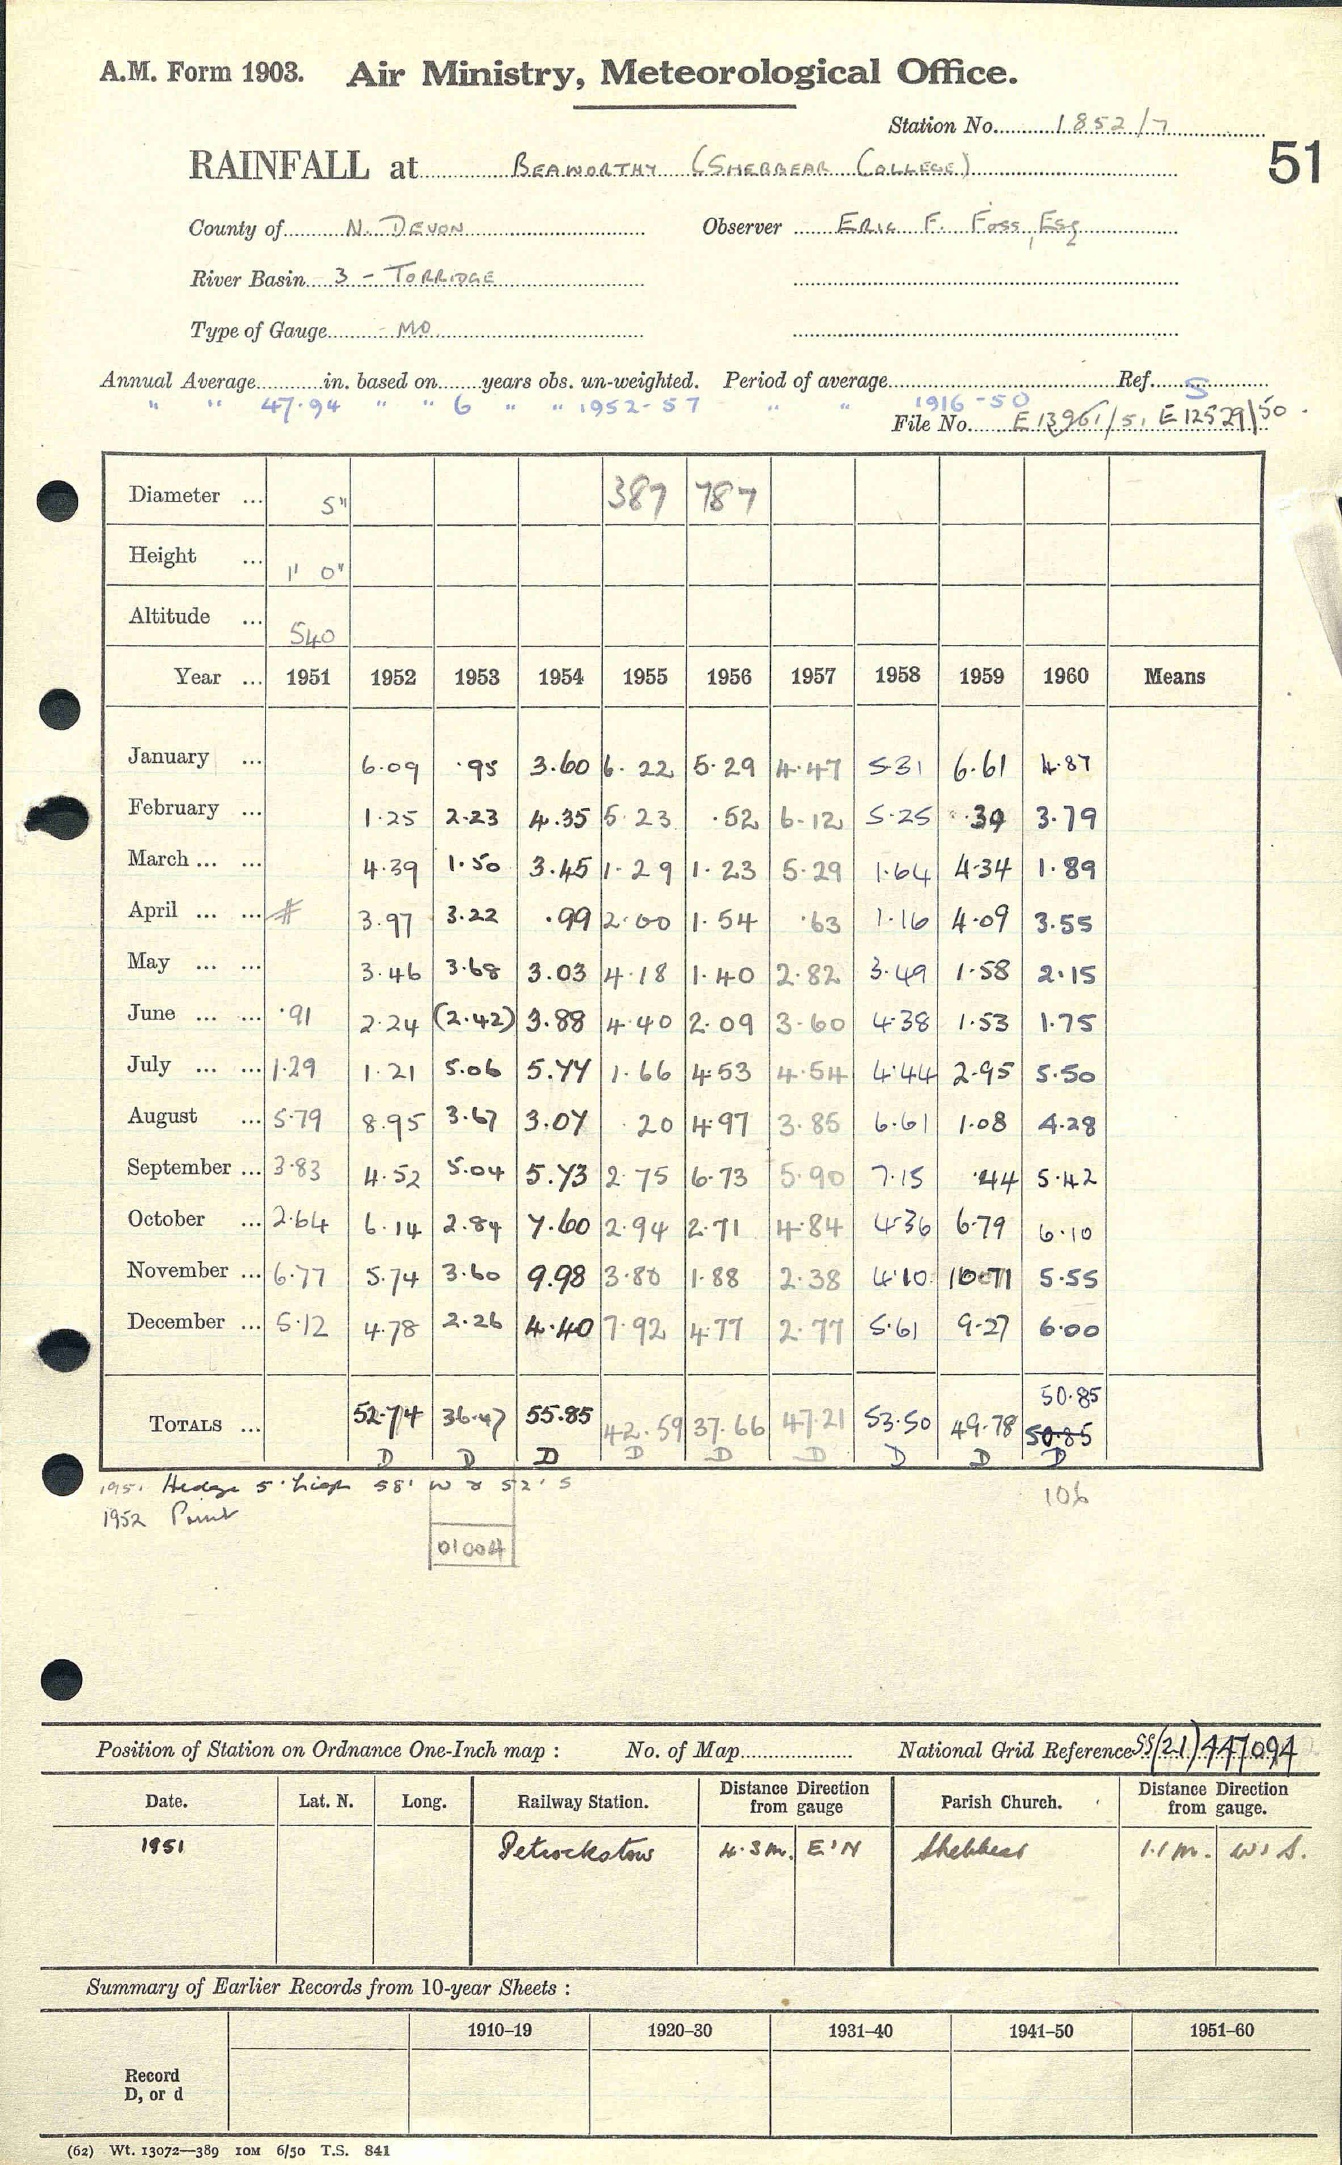 A.M. Form 1903. Air Ministry, Meteorological Office.
Station No. 1852/7
RAINFALL at BEAWORTHY (SHEBBEAR COLLEGE)
51
County of N. DEVON Observer ERIC F. FOSS, Esq
River Basin 3 - TORRIDGE
Type of Gauge MO
Annual Average in. based on years obs. un-weighted. Period of average Ref. S
" " 47.94 " " 6 " " 1952-57 " " 1916-50
File No. E 13961/51 E 12529/50
Diameter ... 5" 387 787
Height ... 1' 0"
Altitude ... 540
Year ... 1951 1952 1953 1954 1955 1956 1957 1958 1959 1960 Means
January ... 6.09 .95 3.60 6.22 5.29 4.47 5.31 6.61 4.87
February ... 1.25 2.23 4.35 5.23 .52 6.12 5.25 .39 3.79
March ... ... 4.39 1.50 3.45 1.29 1.23 5.29 1.64 4.34 1.89
April ... ... 3.97 3.22 .99 2.00 1.54 .63 1.16 4.09 3.55
May ... ... 3.46 3.68 3.03 4.18 1.40 2.82 3.49 1.58 2.15
June ... ... .91 2.24 (2.42) 3.88 4.40 2.09 3.60 4.38 1.53 1.75
July ... ... 1.29 1.21 5.06 5.77 1.66 4.53 4.54 4.44 2.95 5.50
August ... 5.79 8.95 3.67 3.07 .20 4.97 3.85 6.61 1.08 4.28
September ... 3.83 4.52 5.04 5.73 2.75 6.73 5.90 7.15 .44 5.42
October ... 2.64 6.14 2.84 7.60 2.94 2.71 4.84 4.36 6.79 6.10
November ... 6.77 5.74 3.60 9.98 3.80 1.88 2.38 4.10 10.71 5.55
December ... 5.12 4.78 2.26 4.40 7.92 4.77 2.77 5.61 9.27 6.00
50.85
TOTALS ... 52.74 36.47 55.85 42.59 37.66 47.21 53.50 49.78 50.85
D D D D D D D D D
1951 Hedge 5' high 58' W & 52' S
106
1952
01004
Position of Station on Ordnance One-Inch map : No. of Map National Grid Reference SS(21)447094
Date. Lat. N. Long. Railway Station. Distance Direction from gauge Parish Church. Distance Direction from gauge.
1951 Petrockstow 4.3 m. E'N Shebbear 1.1 m. W'S.
Summary of Earlier Records from 10-year Sheets :
1910–19 1920–30 1931–40 1941–50 1951–60
Record
D, or d
(62) Wt. 13072—389 10M 6/50 T.S. 841